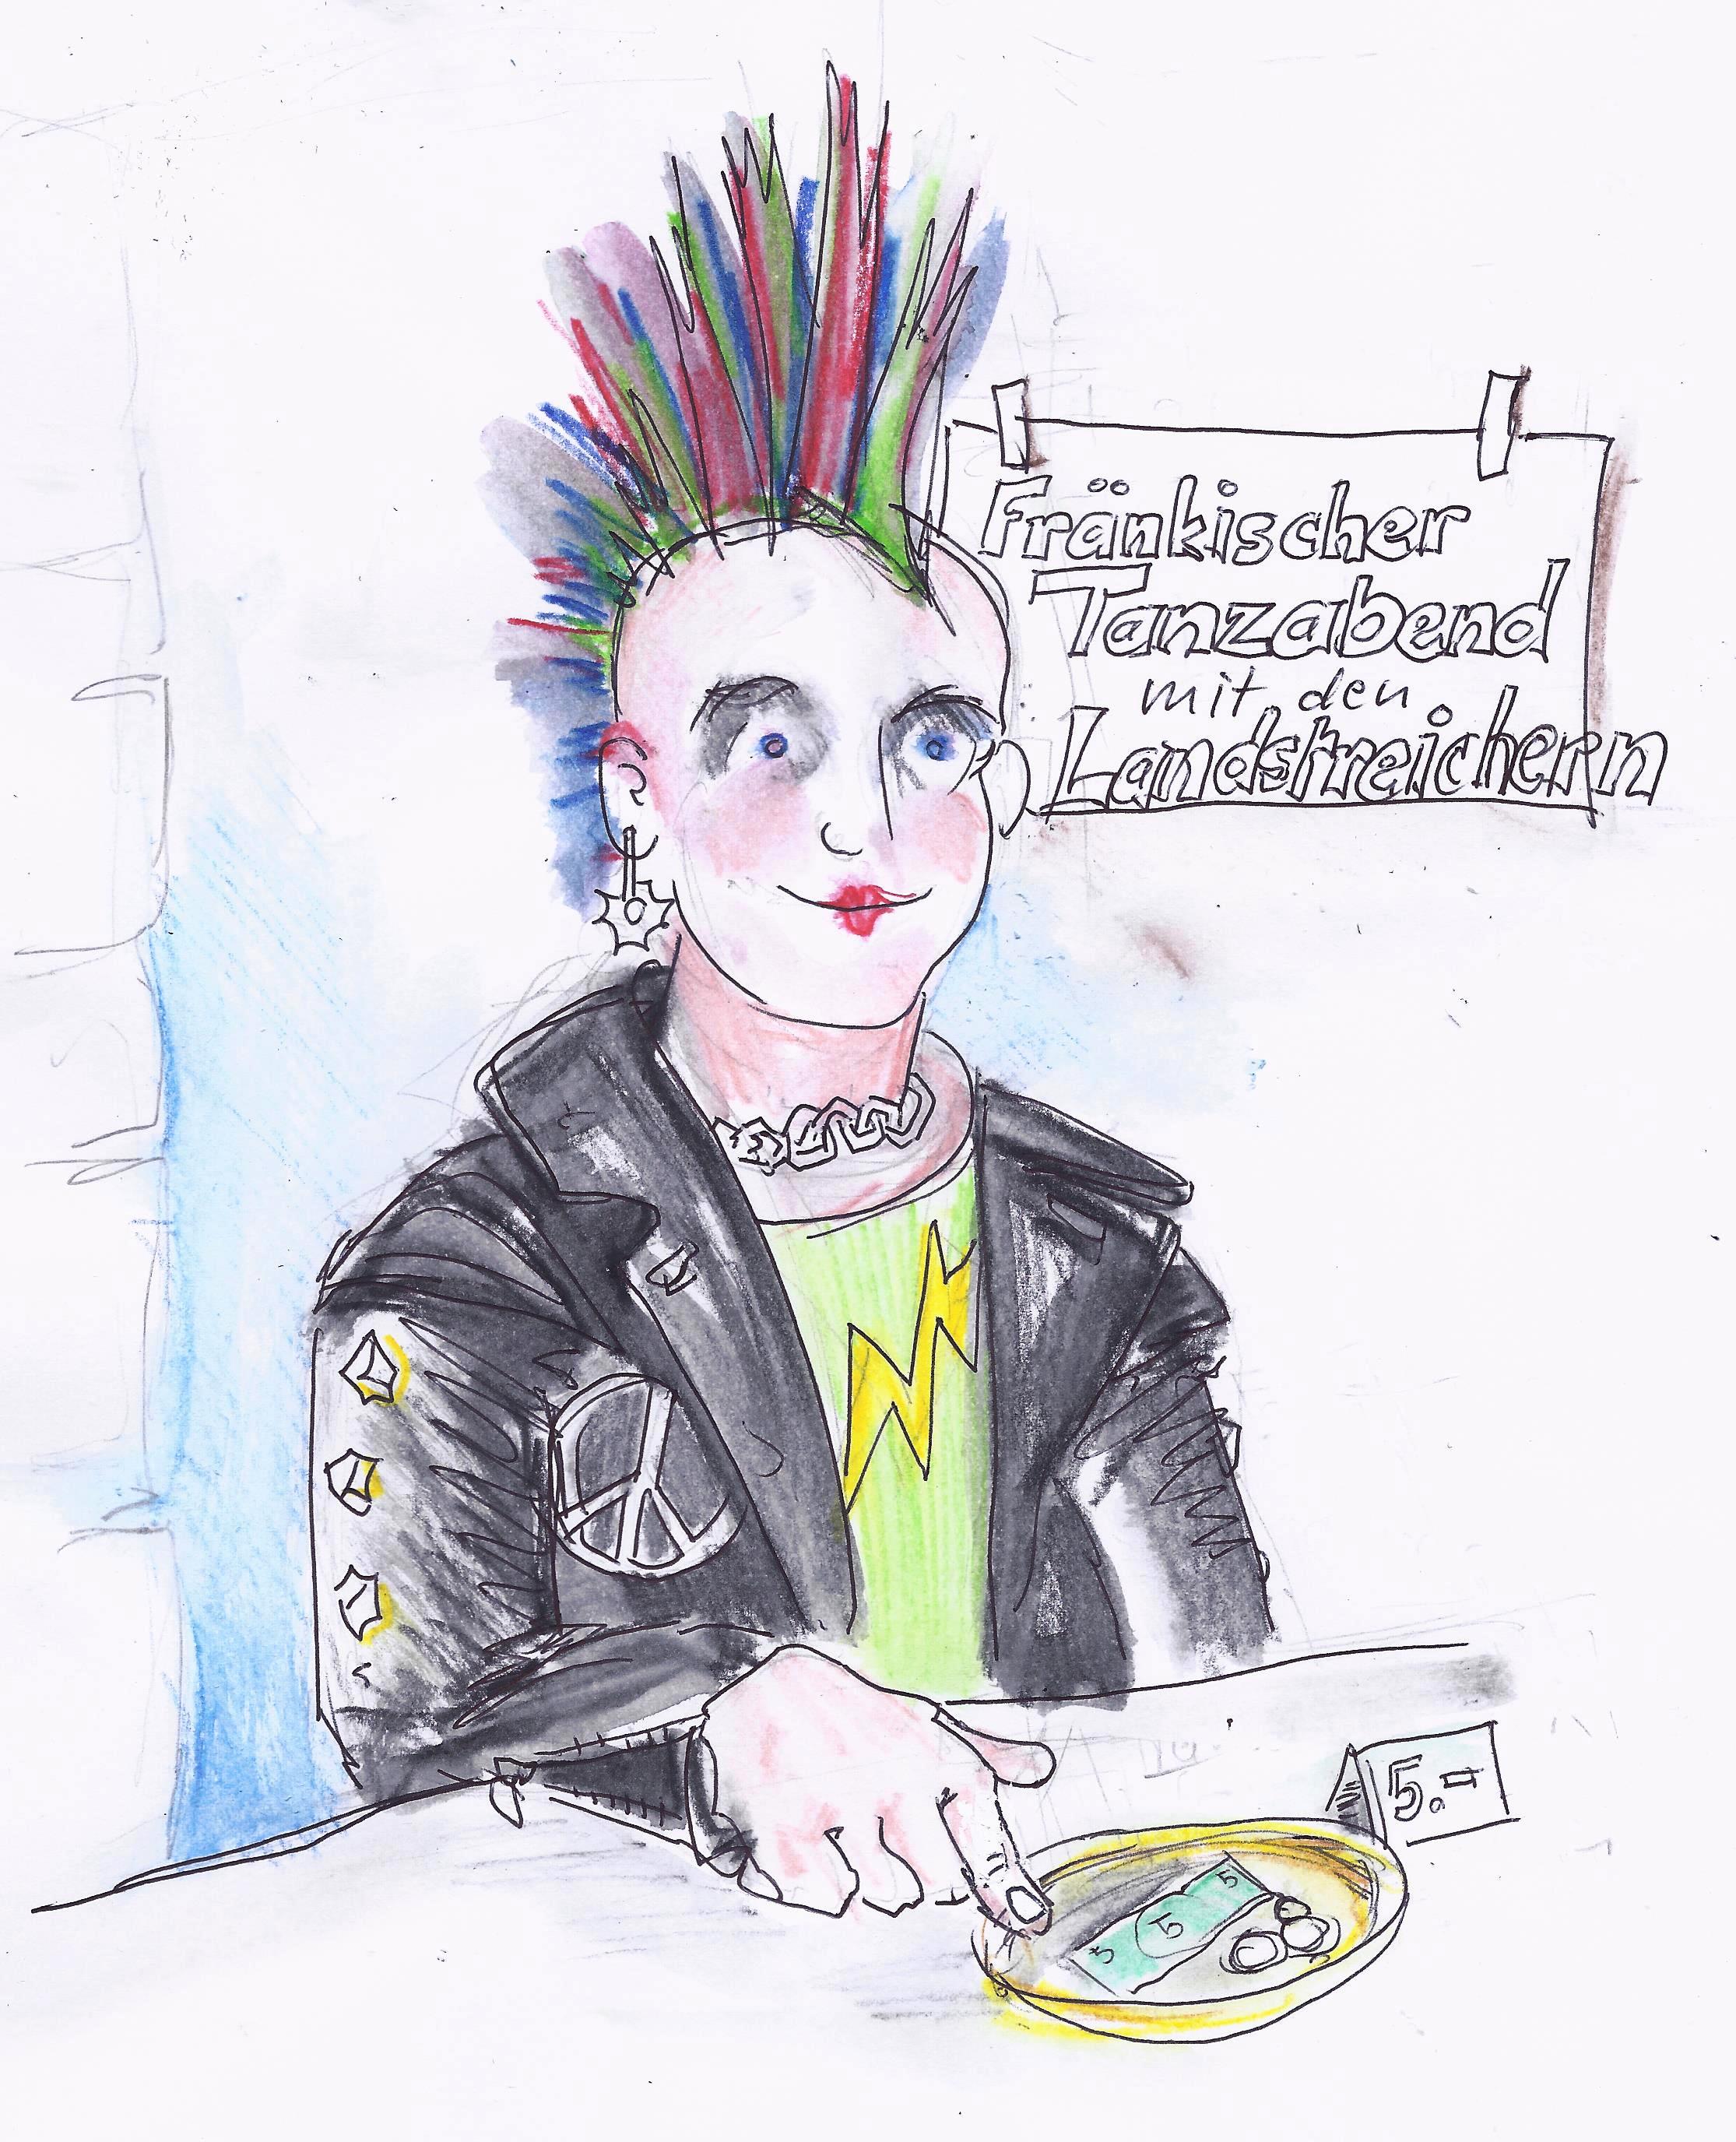 Fränkischer
Tanzabend
mit den
Landstreichern
5.-
5 5 5